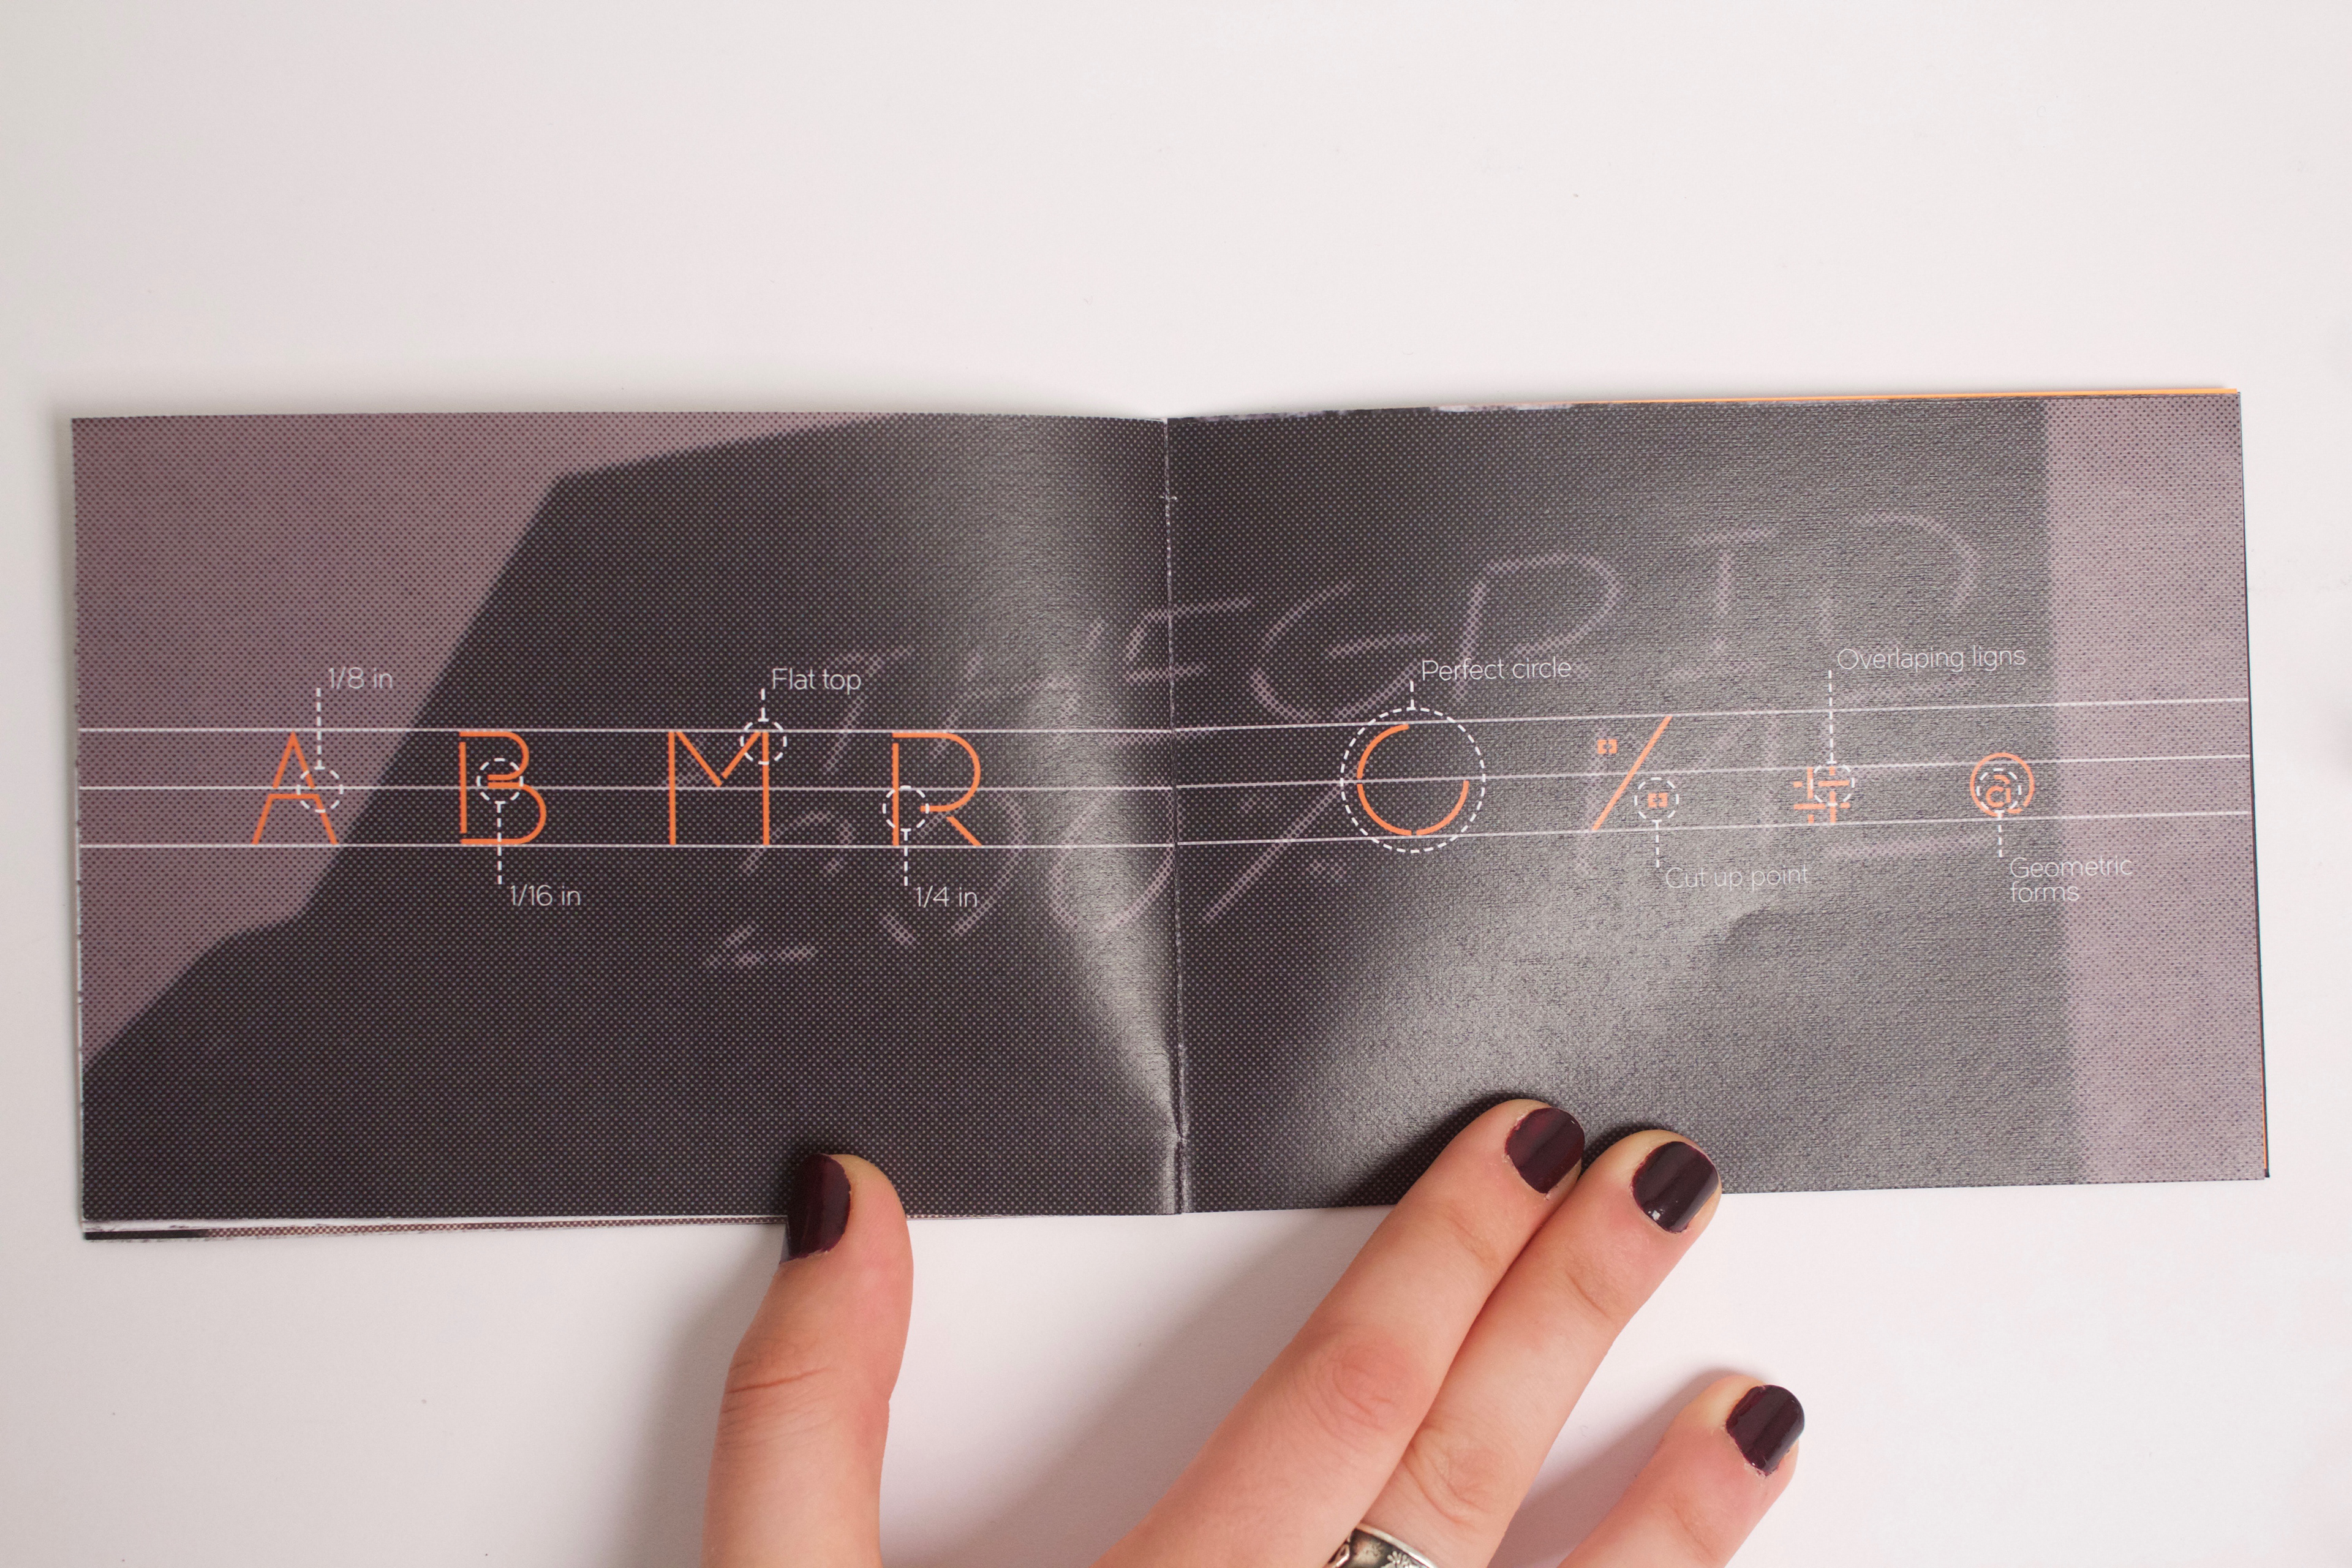 1/8 in
Flat top
Perfect circle
Overlaping ligns
A B M R C % # @
1/16 in
1/4 in
Cut up point
Geometric
forms